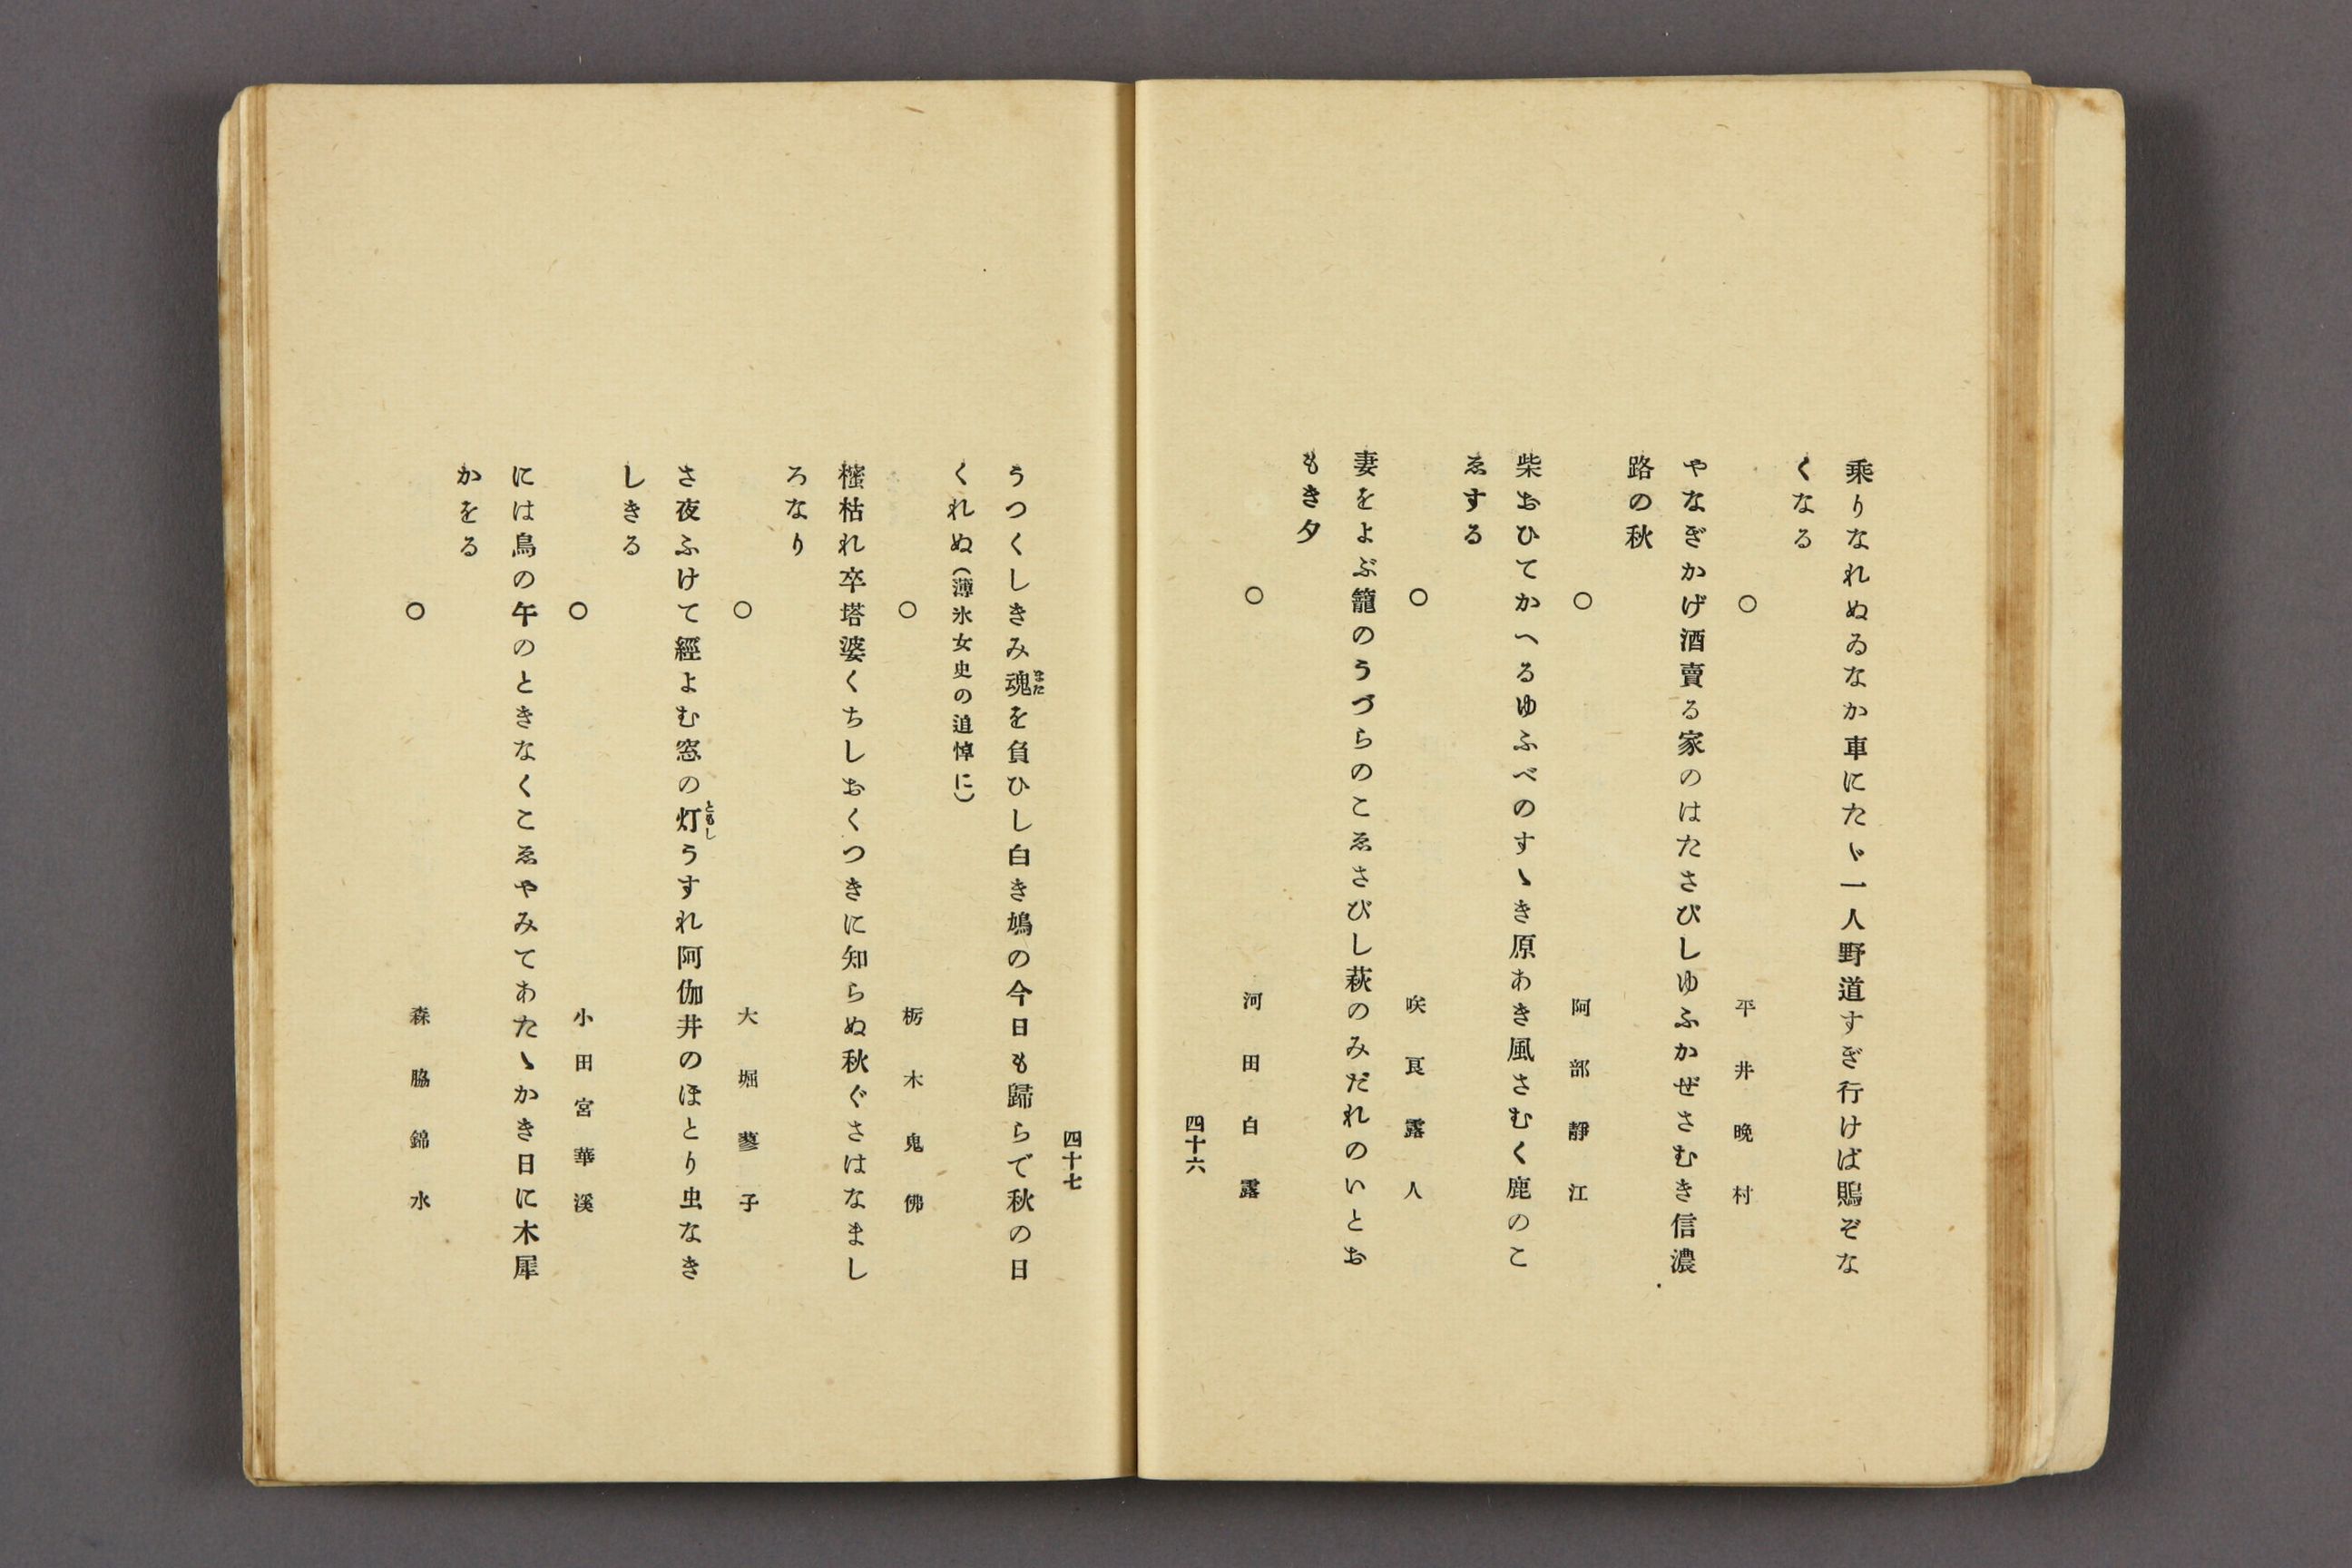 乘りなれぬゐなか車にたゞ一人野道すぎ行けば鵙ぞな
くなる
○ 平井晩村
やなぎかげ酒賣る家のはたさびしゆふかぜさむき信濃
路の秋
○ 阿部靜江
柴おひてかへるゆふべのすゝき原あき風さむく鹿のこ
ゑする
○ 咲亙露人
妻をよぶ籠のうづらのこゑさびし萩のみだれのいとお
もき夕
○ 河田白露
四十六
四十七
うつくしきみ魂を負ひし白き鳩の今日も歸らで秋の日
くれぬ(薄氷女史の追悼に)
○ 栃木鬼佛
樒枯れ卒塔婆くちしおくつきに知らぬ秋ぐさはなまし
ろなり
○ 大堀蓼子
さ夜ふけて經よむ窓の灯ともしうすれ阿伽井のほとり虫なき
しきる
○ 小田宮華溪
には鳥の午のときなくこゑやみてあたゝかき日に木犀
かをる
○ 森脇錦水